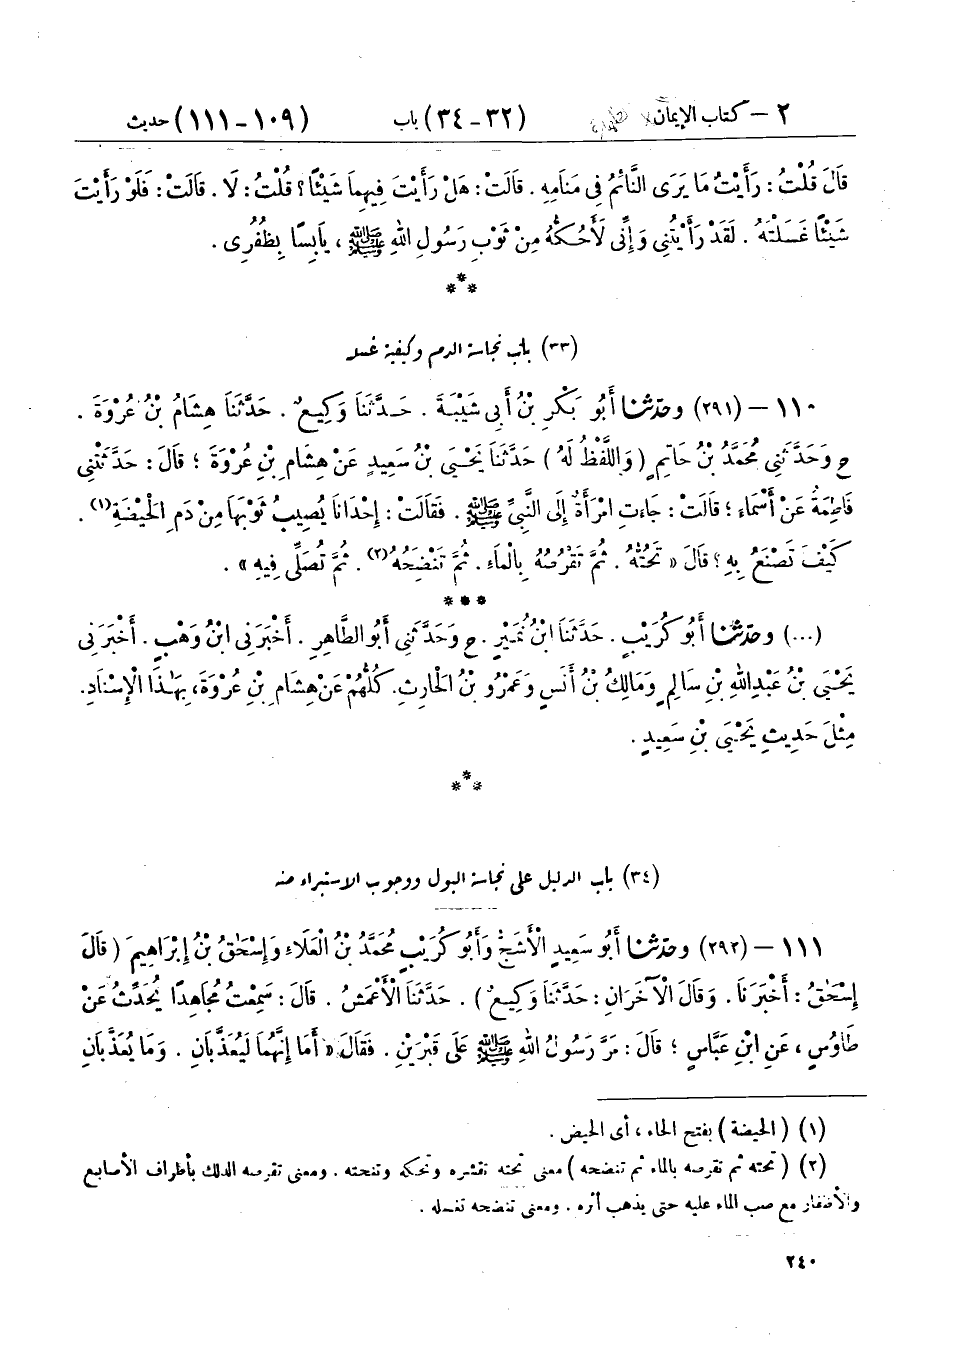 ٢ – كتاب الإيمان (٣٢-٣٤) باب (١٠٩-١١١) حديث
قَالَ قُلْتُ: رَأَيْتُ مَا يَرَى النَّائِمُ فِى مَنَامِهِ. قَالَتْ: هَلْ رَأَيْتَ فِيهِمَا شَيْئًا؟ قُلْتُ: لَا. قَالَتْ: فَلَوْ رَأَيْتَ
شَيْئًا غَسَلْتَهُ. لَقَدْ رَأَيْتُنِى وَإِنِّى لَأَحُكُّهُ مِنْ ثَوْبِ رَسُولِ اللهِ ﷺ، يَابِسًا بِظُفُرِى.
***
(٣٣) باب نجاسة الدم وكيفية غسله
١١٠ – (٢٩١) وحدثنا أَبُو بَكْرِ بْنُ أَبِى شَيْبَةَ. حَدَّثَنَا وَكِيعٌ. حَدَّثَنَا هِشَامُ بْنُ عُرْوَةَ.
ح وَحَدَّثَنِى مُحَمَّدُ بْنُ حَاتِمٍ (وَاللَّفْظُ لَهُ) حَدَّثَنَا يَحْيَىٰ بْنُ سَعِيدٍ عَنْ هِشَامِ بْنِ عُرْوَةَ؛ قَالَ: حَدَّثَتْنِى
فَاطِمَةُ عَنْ أَسْمَاء؛ قَالَتْ: جَاءتِ امْرَأَةٌ إِلَى النَّبِىِّ ﷺ. فَقَالَتْ: إِحْدَانَا يُصِيبُ ثَوْبَهَا مِنْ دَمِ الْحَيْضَةِ(١).
كَيْفَ تَصْنَعُ بِهِ؟ قَالَ «تَحُتُّهُ. ثُمَّ تَقْرُصُهُ بِالْمَاء. ثُمَّ تَنْضَحُهُ(٢). ثُمَّ تُصَلِّى فِيهِ».
***
(...) وحدثنا أَبُو كُرَيْبٍ. حَدَّثَنَا ابْنُ نُمَيْرٍ. ح وَحَدَّثَنِى أَبُو الطَّاهِرِ. أَخْبَرَنِى ابْنُ وَهْبٍ. أَخْبَرَنِى
يَحْيَىٰ بْنُ عَبْدِ اللهِ بْنِ سَالِمٍ وَمَالِكُ بْنُ أَنَسٍ وَعَمْرُو بْنُ الْحَارِثِ. كُلُّهُمْ عَنْ هِشَامِ بْنِ عُرْوَةَ، بِهَٰذَا الْإِسْنَادِ.
مِثْلَ حَدِيثِ يَحْيَىٰ بْنِ سَعِيدٍ.
***
(٣٤) باب الدليل على نجاسة البول ووجوب الاستبراء منه
١١١ – (٢٩٢) وحدثنا أَبُو سَعِيدٍ الْأَشَجُّ وَأَبُو كُرَيْبٍ مُحَمَّدُ بْنُ الْعَلَاءِ وَإِسْحَٰقُ بْنُ إِبْرَاهِيمَ (قَالَ
إِسْحَٰقُ: أَخْبَرَنَا. وَقَالَ الْآخَرَانِ: حَدَّثَنَا وَكِيعٌ). حَدَّثَنَا الْأَعْمَشُ. قَالَ: سَمِعْتُ مُجَاهِدًا يُحَدِّثُ عَنْ
طَاوُسٍ، عَنِ ابْنِ عَبَّاسٍ؛ قَالَ: مَرَّ رَسُولُ اللهِ ﷺ عَلَى قَبْرَيْنِ. فَقَالَ «أَمَا إِنَّهُمَا لَيُعَذَّبَانِ. وَمَا يُعَذَّبَانِ
(١) (الحيضة) بفتح الحاء، أى الحيض.
(٢) (تحته ثم تقرصه بالماء ثم تنضحه) معنى تحته تقشره وتحكه وتنحته. ومعنى تقرصه الدلك بأطراف الأصابع
والأظفار مع صب الماء عليه حتى يذهب أثره. ومعنى تنضحه تغسله.
٢٤٠